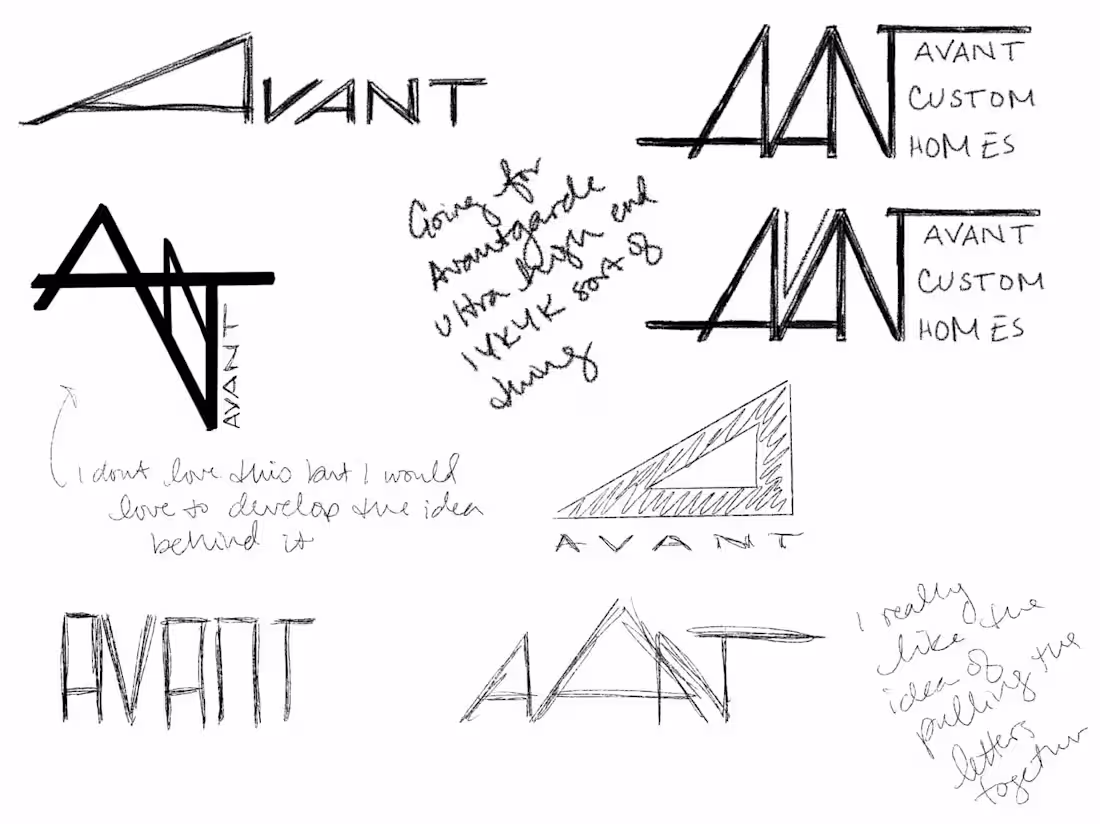 AVANT
AVANT
CUSTOM
HOMES
Going for
Avantgarde
ultra high end
IYKYK sort of
thing
ANT
AVANT
AVANT
AVANT
CUSTOM
HOMES
I dont love this but I would
love to develop the idea
behind it
AVANT
AVANT
AANT
I really
like the
idea of
pulling the
letters
together